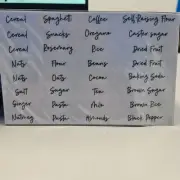 Cereal Spaghetti Coffee Self Raising Flour
Cereal Snacks Oregano Castor sugar
Cereal Rosemary Rice Dried Fruit
Nuts Flour Beans Dried Fruit
Nuts Oats Cocoa Baking Soda
Salt Sugar Tea Brown Sugar
Ginger Pasta Milo Brown Rice
Nutmeg Pasta Almonds Black Pepper